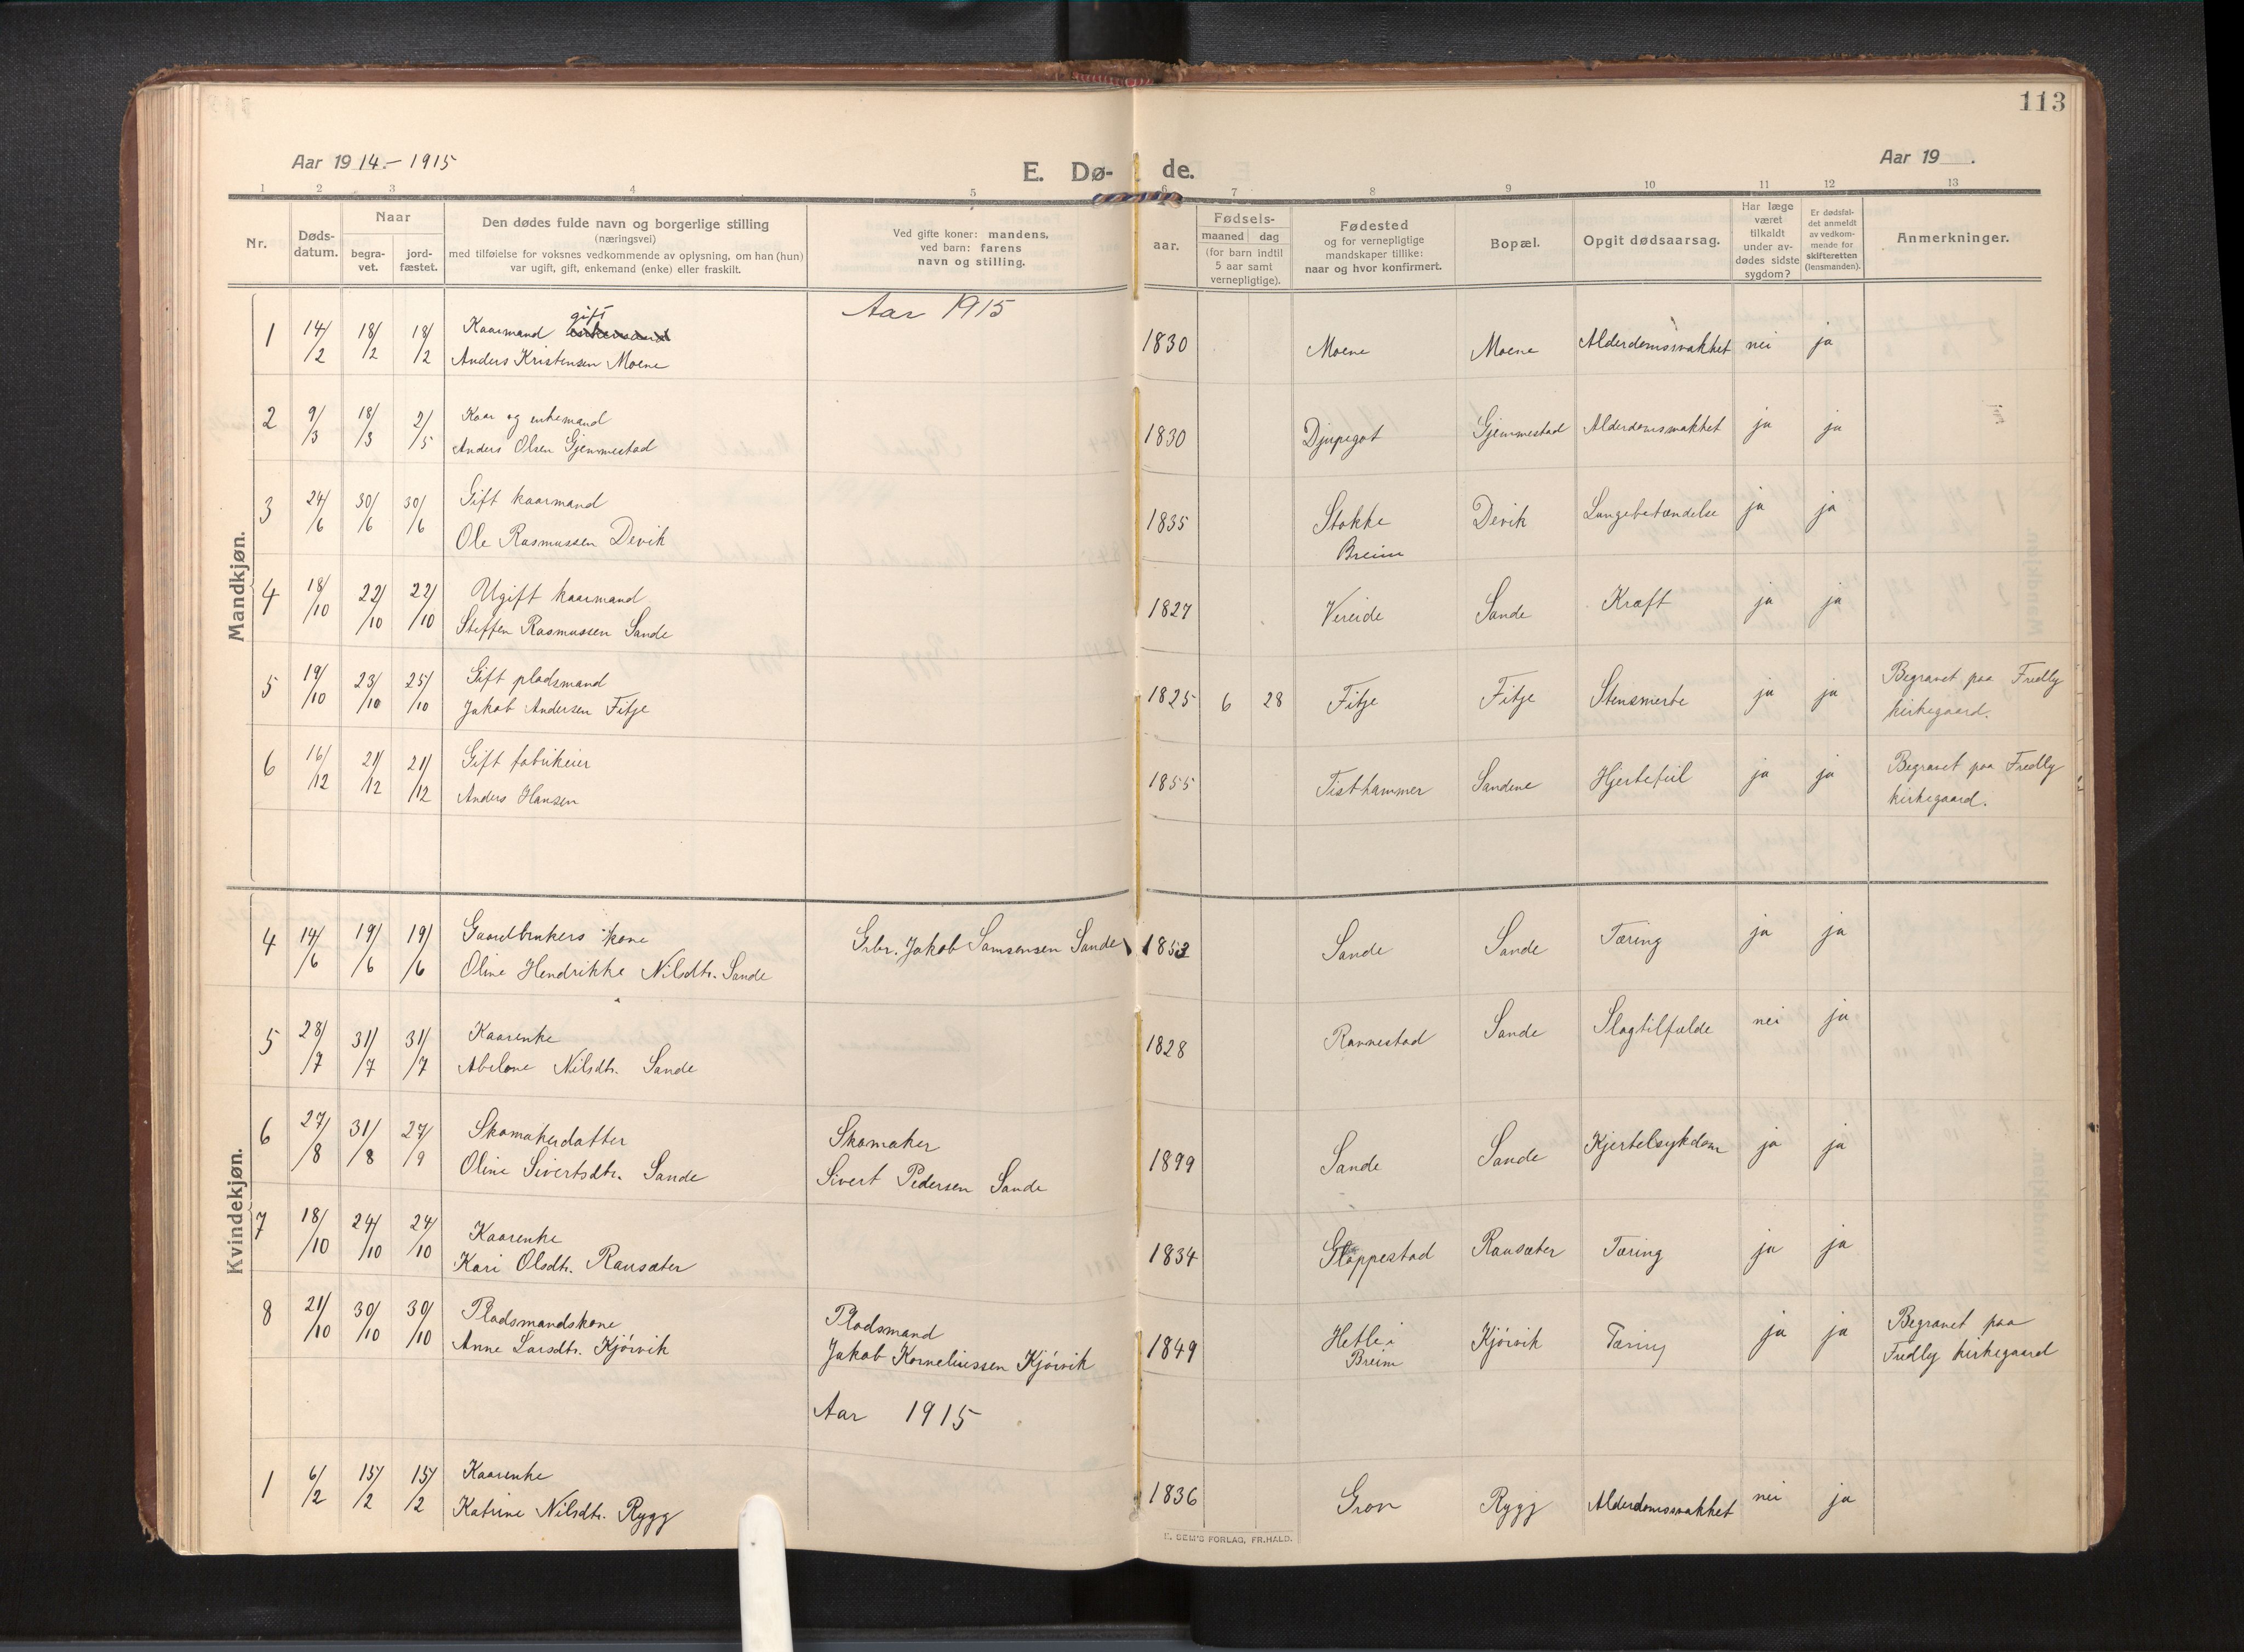 113
Aar 19 14.- 1915
E. Dø- de.
Aar 19 .
1 2 3 4 5 6 7 8 9 10 11 12 13
Nr.
Døds-
datum.
Naar
begra-
vet.
jord-
fæstet.
Den dødes fulde navn og borgerlige stilling
(næringsvei)
med tilføielse for voksnes vedkommende av oplysning, om han (hun)
var ugift, gift, enkemand (enke) eller fraskilt.
Ved gifte koner: mandens,
ved barn: farens
navn og stilling.
aar.
Fødsels-
maaned dag
(for barn indtil
5 aar samt
vernepligtige).
Fødested
og for vernepligtige
mandskaper tillike:
naar og hvor konfirmert.
Bopæl.
Opgit dødsaarsag.
Har læge
været
tilkaldt
under av-
dødes sidste
sygdom?
Er dødsfal-
det anmeldt
av vedkom-
mende for
skifteretten
(lensmanden).
Anmerkninger.
Mandkjøn.
Aar 1915
1 14/2 18/2 18/2 Kaarmand gift enkemand
Anders Kristensen Moene
1830 Moene Moene Alderdomssvakhet nei ja
2 9/3 18/3 2/5 Kaar og enkemand
Anders Olsen Gjemmestad
1830 Djupegot Gjemmestad Alderdomssvakhet ja ja
3 24/6 30/6 30/6 Gift kaarmand
Ole Rasmussen Devik
1835 Stokke
Breim
Devik Lungebetændelse ja ja
4 18/10 22/10 22/10 Ugift kaarmand
Steffen Rasmussen Sande
1827 Vereide Sande Kræft ja ja
5 19/10 23/10 25/10 Gift pladsmand
Jakob Andersen Fitje
1825 6 28 Fitje Fitje Stensmerte ja ja Begravet paa Fredly
kirkegaard.
6 16/12 21/12 21/12 Gift fabrikeier
Anders Hansen
1855 Tisthammer Sandene Hjertefeil ja ja Begravet paa Fredly
kirkegaard.
Kvindekjøn.
4 14/6 19/6 19/6 Gaardbrukers kone
Oline Hendrikke Nilsdtr. Sande
Grbr. Jakob Samsonsen Sande
1853 Sande Sande Tæring ja ja
5 28/7 31/7 31/7 Kaarenke
Abelone Nilsdtr. Sande
1828 Ravnestad Sande Slagtilfælde nei ja
6 27/8 31/8 27/9 Skomakerdatter
Oline Sivertsdtr. Sande
Skomaker
Sivert Pedersen Sande
1899 Sande Sande Kjertelsykdom ja ja
7 18/10 24/10 24/10 Kaarenke
Kari Olsdtr. Rausæter
1834 Gloppestad Rausæter Tæring ja ja
8 21/10 30/10 30/10 Pladsmandskone
Anne Larsdtr. Kjörvik
Pladsmand
Jakob Korneliussen Kjörvik
1849 Hetle i
Breim
Kjörvik Tæring ja ja Begravet paa
Fredly kirkegaard
Aar 1915
1 6/2 15/2 15/2 Kaarenke
Katrine Nilsdtr. Rygg
1836 Grov Rygg Alderdomssvakhet nei ja
E. SEM'S FORLAG, FR.HALD.